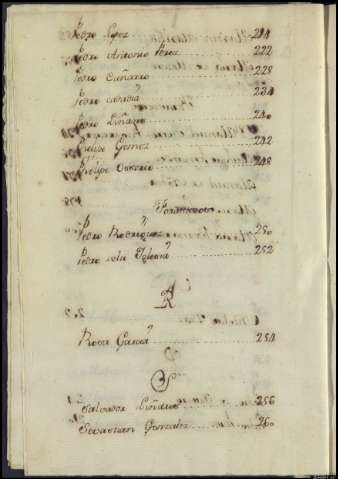 Pedro Lopez 214
Pedro Antonio Perez 222
Pedro Cuñarro 228
Pedro 234
Pedro Liñares 240
Phelipe Gomez 242
Phelipe 248
Forasteros
Pedro Rodriguez 250
Pedro dela Yglesia 252
R
Rosa Garcia 254
S
Salvador Liñares 256
Sevastian Gonzalez 260